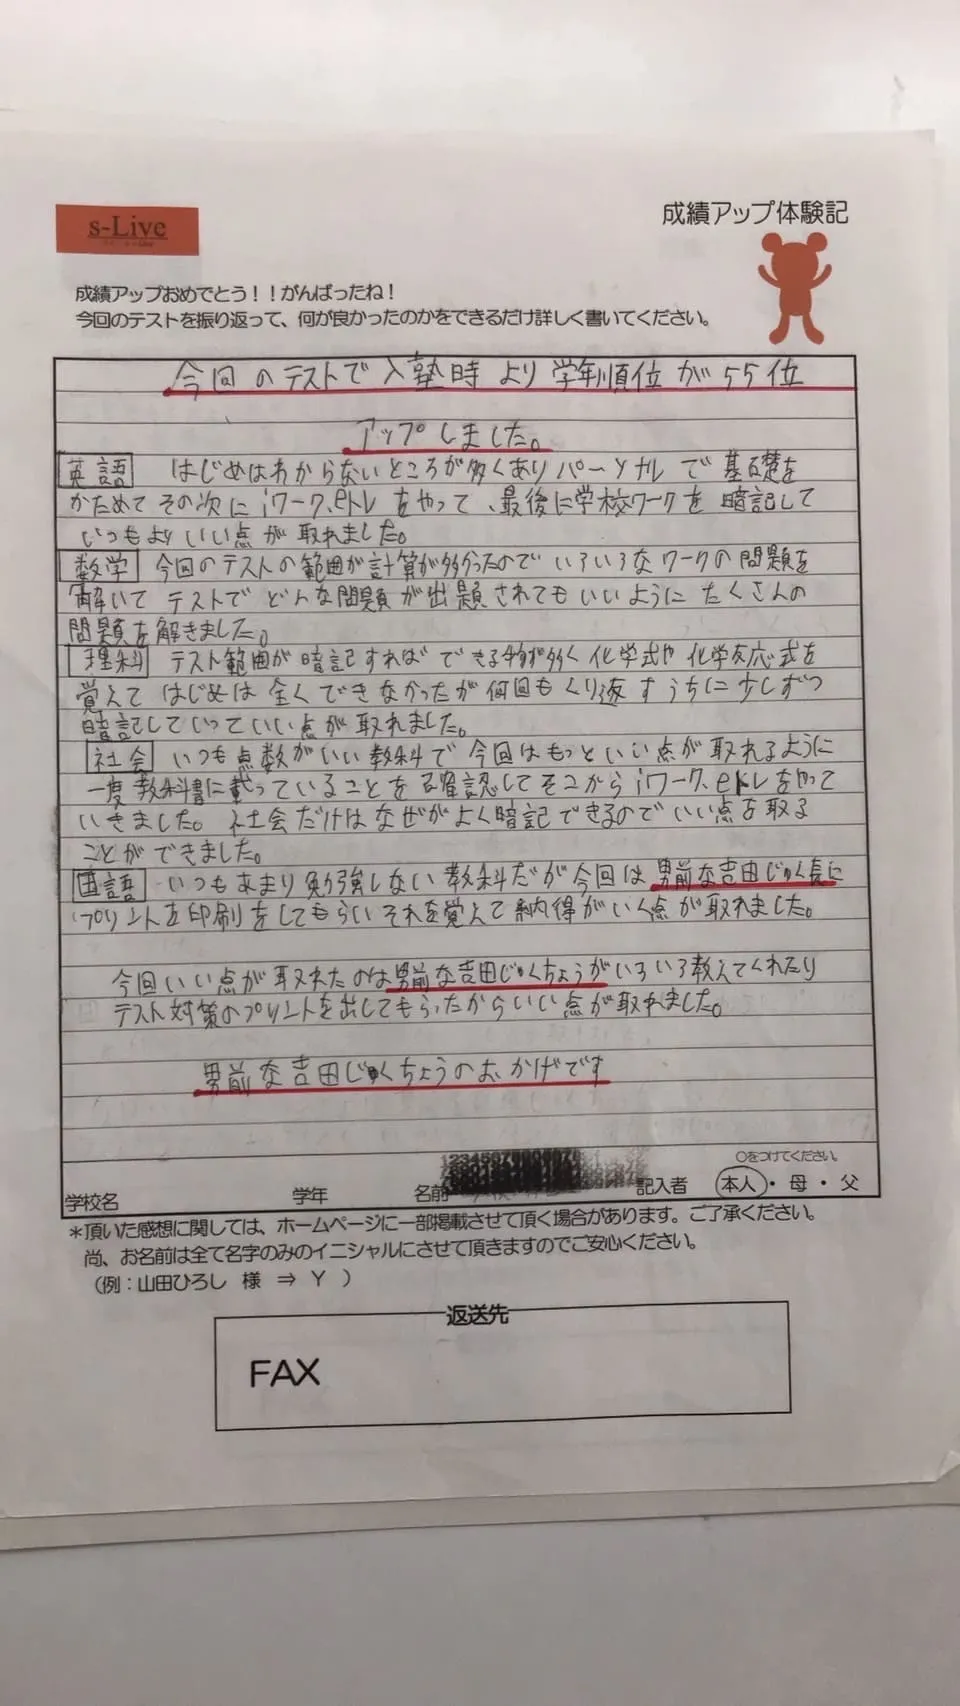 s-Live
成績アップ体験記
成績アップおめでとう！！がんばったね！
今回のテストを振り返って、何が良かったのかをできるだけ詳しく書いてください。
今回のテストで入塾時より学年順位が55位
アップしました。
英語 はじめはわからないところが多くありパーソナルで基礎を
かためてその次にiワーク、eトレをやって、最後に学校ワークを暗記して
いつもよりいい点が取れました。
数学 今回のテストの範囲が計算が多かったのでいろいろなワークの問題を
解いてテストでどんな問題が出題されてもいいようにたくさんの
問題を解きました。
理科 テスト範囲が暗記すればできる物が多く化学式や化学反応式を
覚えてはじめは全くできなかったが何回もくり返すうちに少しずつ
暗記していっていい点が取れました。
社会 いつも点数がいい教科で今回はもっといい点が取れるように
一度教科書に載っていることを確認してそこからiワーク、eトレをやって
いきました。社会だけはなぜがよく暗記できるのでいい点を取る
ことができました。
国語 いつもあまり勉強しない教科だが今回は男前な吉田じゅく長に
プリントを印刷をしてもらいそれを覚えて納得がいく点が取れました。
今回いい点が取れたのは男前な吉田じゅくちょうがいろいろ教えてくれたり
テスト対策のプリントを出してもらったからいい点が取れました。
男前な吉田じゅくちょうのおかげです
○をつけてください。
学校名 学年 名前 記入者 本人・母・父
＊頂いた感想に関しては、ホームページに一部掲載させて頂く場合があります。ご了承ください。
尚、お名前は全て名字のみのイニシャルにさせて頂きますのでご安心ください。
（例：山田ひろし 様 ⇒ Y ）
返送先
FAX